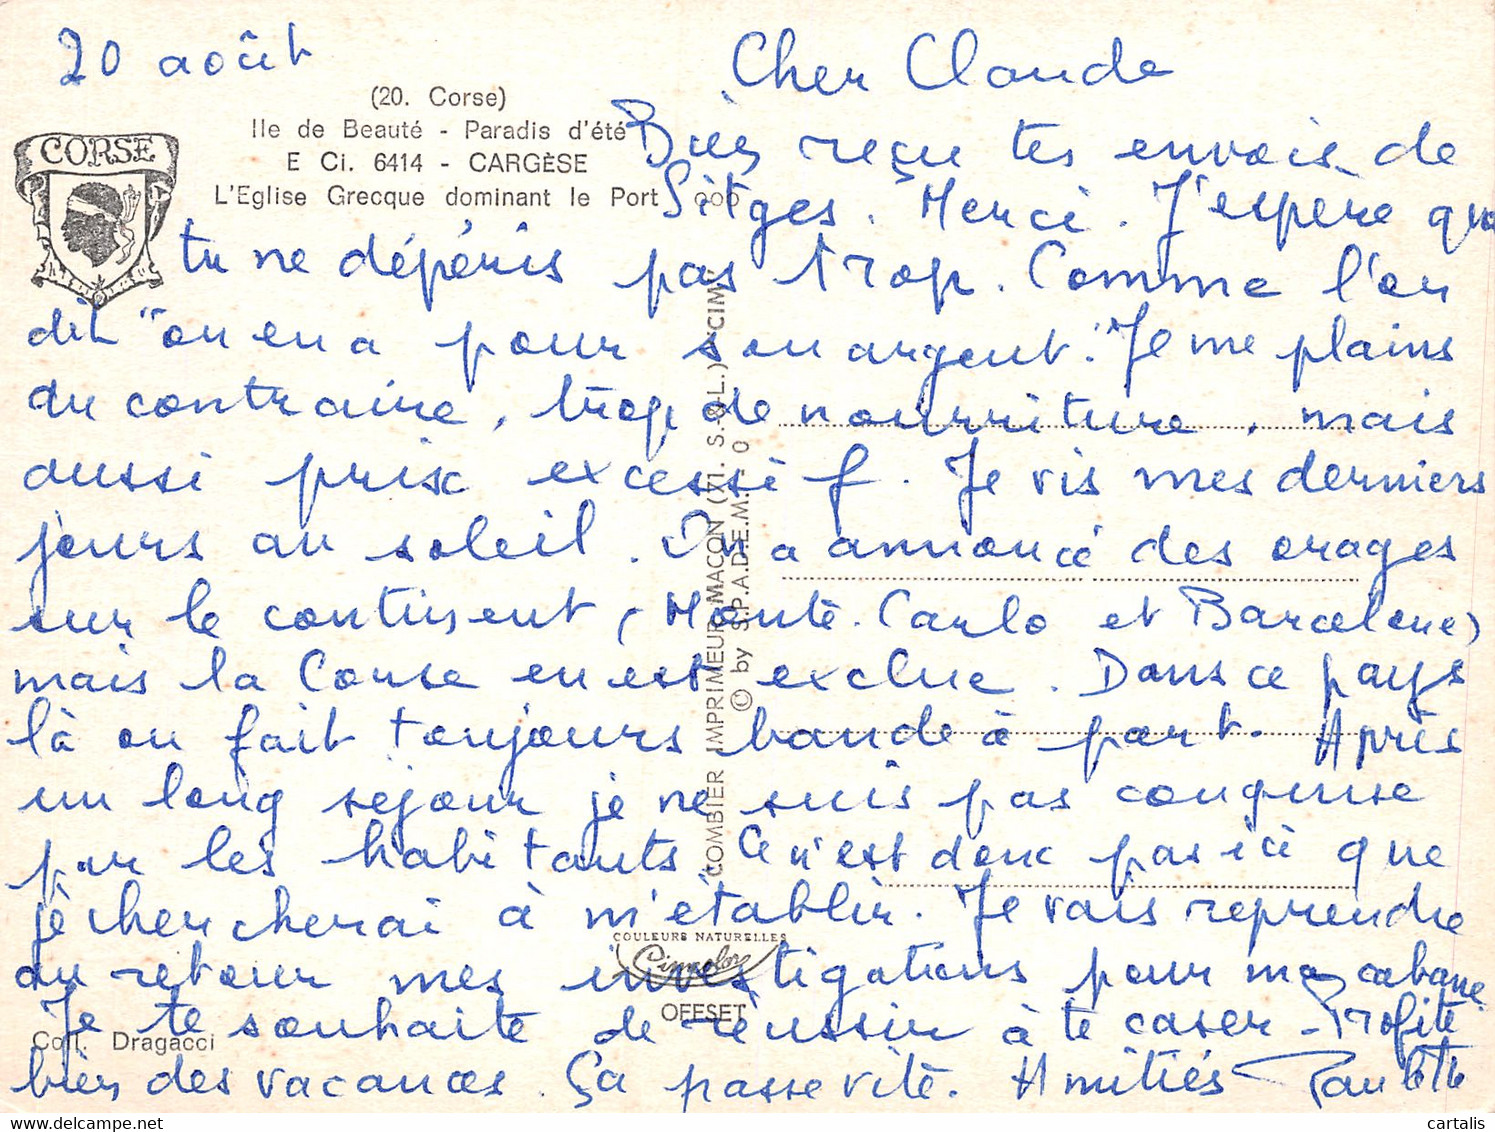 20 août
Cher Claude
(20. Corse)
Ile de Beauté - Paradis d'été
E Ci. 6414 - CARGÈSE
L'Eglise Grecque dominant le Port ooo
CORSE
Bien reçu tes envois de
Sitges. Merci. J'espère que
tu ne dépéris pas trop. Comme l'on
dit "on en a pour son argent". Je me plains
du contraire, trop de nourriture, mais
aussi prix excessif. Je vis mes derniers
jours au soleil. On a annoncé des orages
sur le continent (Monte-Carlo et Barcelone)
mais la Corse en est exclue. Dans ce pays
là on fait toujours bande à part. Après
un long séjour je ne suis pas conquise
par les habitants. Ce n'est donc pas ici que
je chercherai à m'établir. Je vais reprendre
au retour mes investigations pour ma cabane
Je te souhaite de réussir à te caser - Profite
bien des vacances. Ça passe vite. Amitiés Paulette
COMBIER IMPRIMEUR MACON (71. S.-&-L.) "CIM"
© by S.P.A.D.E.M. - 0
COULEURS NATURELLES
OFFSET
Coll. Dragacci
www.delcampe.net
cartalis